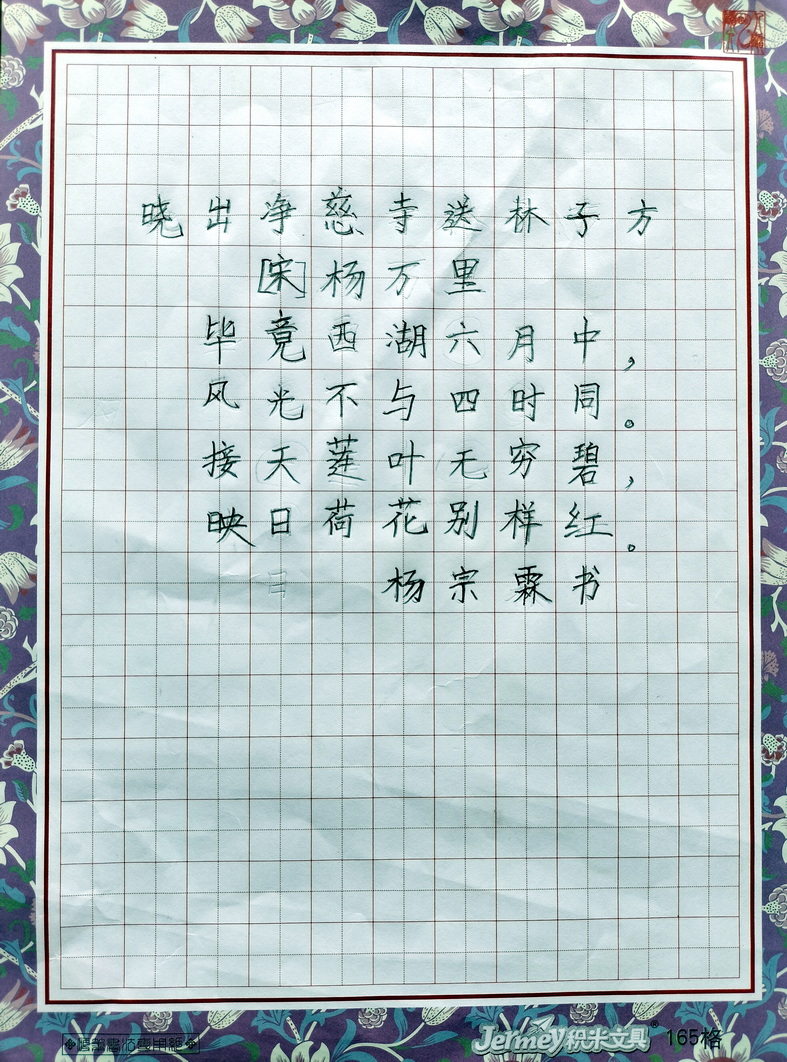 晓出净慈寺送林子方
[宋]杨万里
毕竟西湖六月中，
风光不与四时同。
接天莲叶无穷碧，
映日荷花别样红。
杨宗霖书
Jermey积米文具® 165格